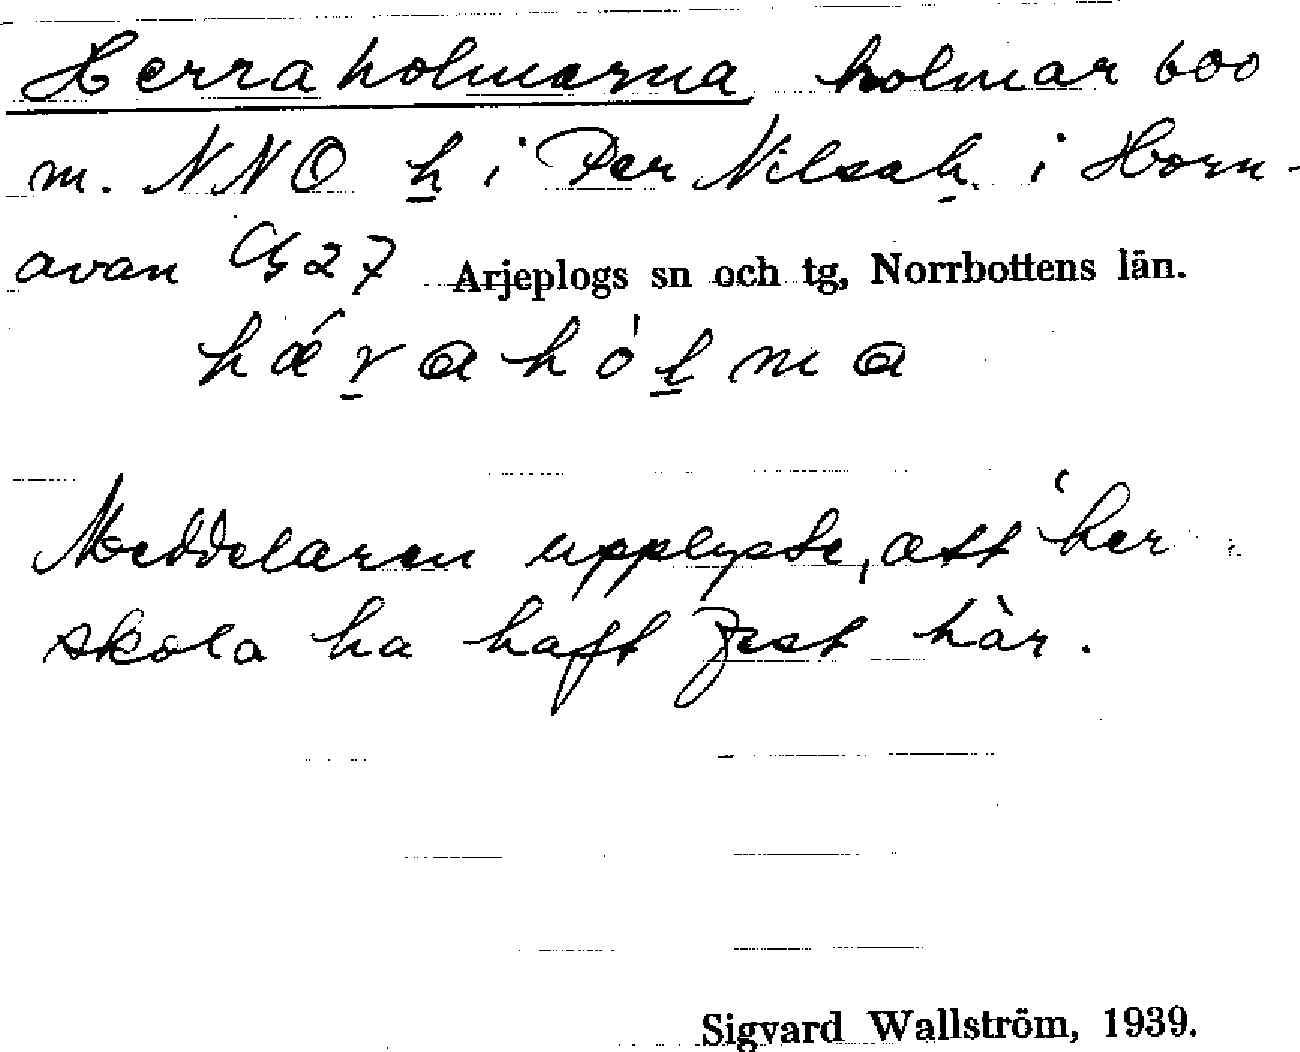 Herraholmarna holmar 600
m. NNO h i Per Nilsah. i Horn-
avan 27 Arjeplogs sn och tg, Norrbottens län.
hǽrahólma
Meddelaren upplyste, att her
skola ha haft fest här.
Sigvard Wallström, 1939.